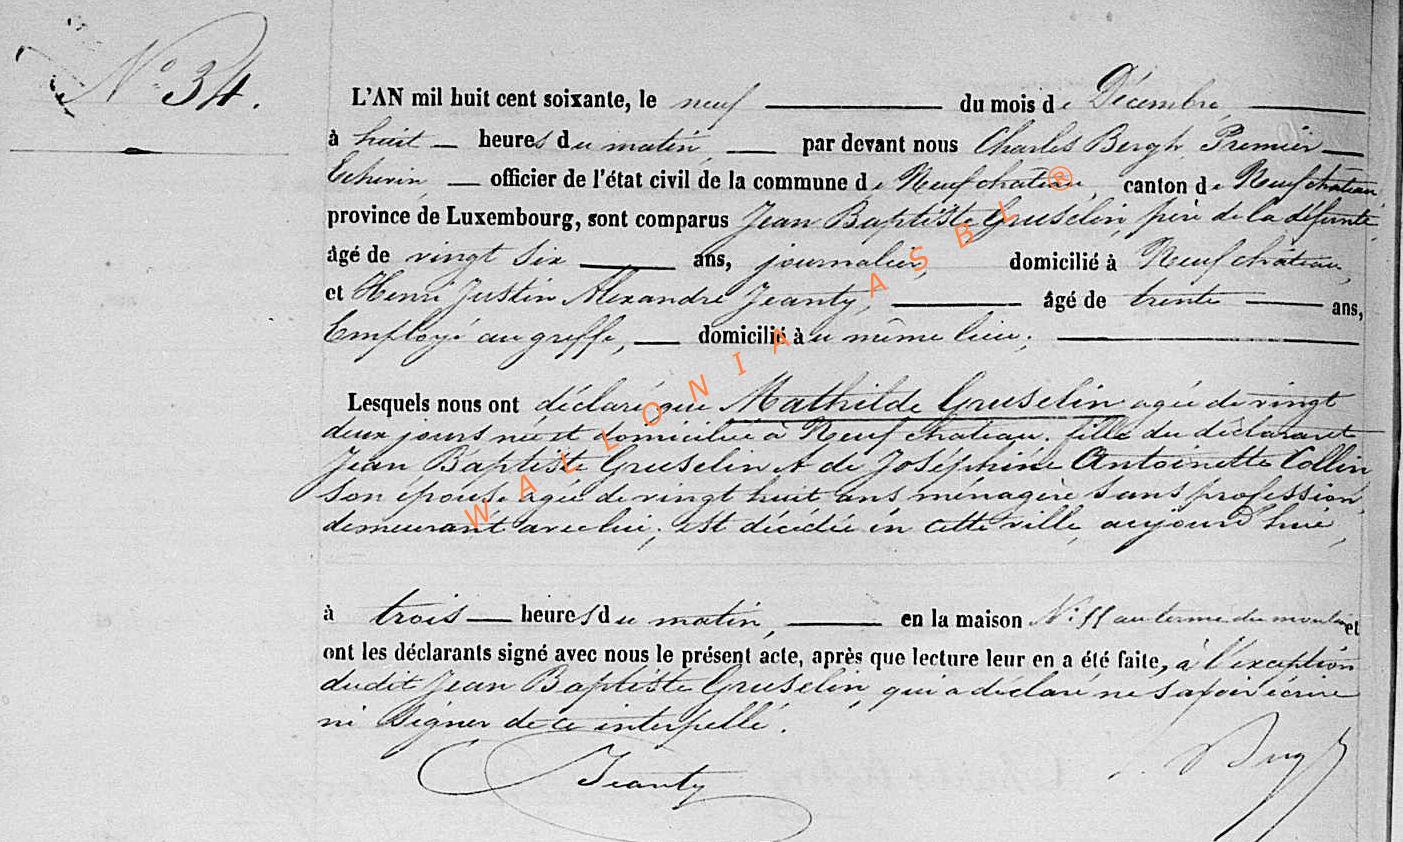 No 34.
L'AN mil huit cent soixante, le neuf du mois de Décembre
à huit heures du matin, par devant nous Charles Bergh, Premier
Echevin, officier de l'état civil de la commune de Neufchateau, canton de Neufchateau
province de Luxembourg, sont comparus Jean Baptiste Gruselin, père de la défunte,
âgé de vingt six ans, journalier, domicilié à Neufchateau,
et Henri Justin Alexandre Jeanty, âgé de trente ans,
Employé au greffe, domicilié à u même lieu;
Lesquels nous ont déclaré que Mathilde Gruselin agée de vingt
deux jours née et domiciliée à Neufchateau, fille du déclarant
Jean Baptiste Gruselin et de Joséphine Antoinette Collin
son épouse agée de vingt huit ans ménagère sans profession,
demeurant avec lui, est décédée en cette ville, aujourd'hui,
à trois heures du matin, en la maison No 55 au terme du moulin et
ont les déclarants signé avec nous le présent acte, après que lecture leur en a été faite, à l'exception
dudit Jean Baptiste Gruselin, qui a déclaré ne savoir écrire
ni signer de ce interpellé.
Jeanty
WALLONIA ASBL ®